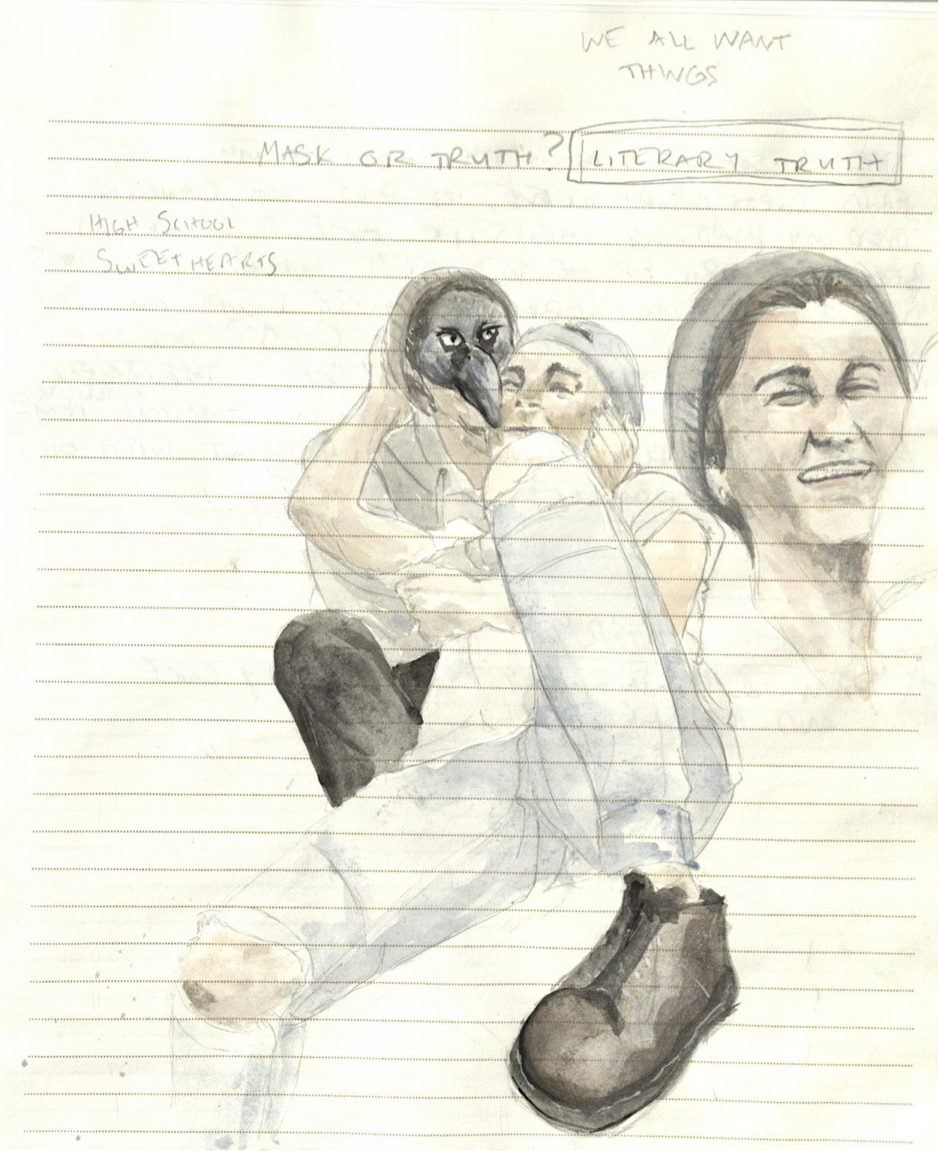 WE ALL WANT
THINGS
MASK OR TRUTH? LITERARY TRUTH
HIGH SCHOOL
SWEETHEARTS